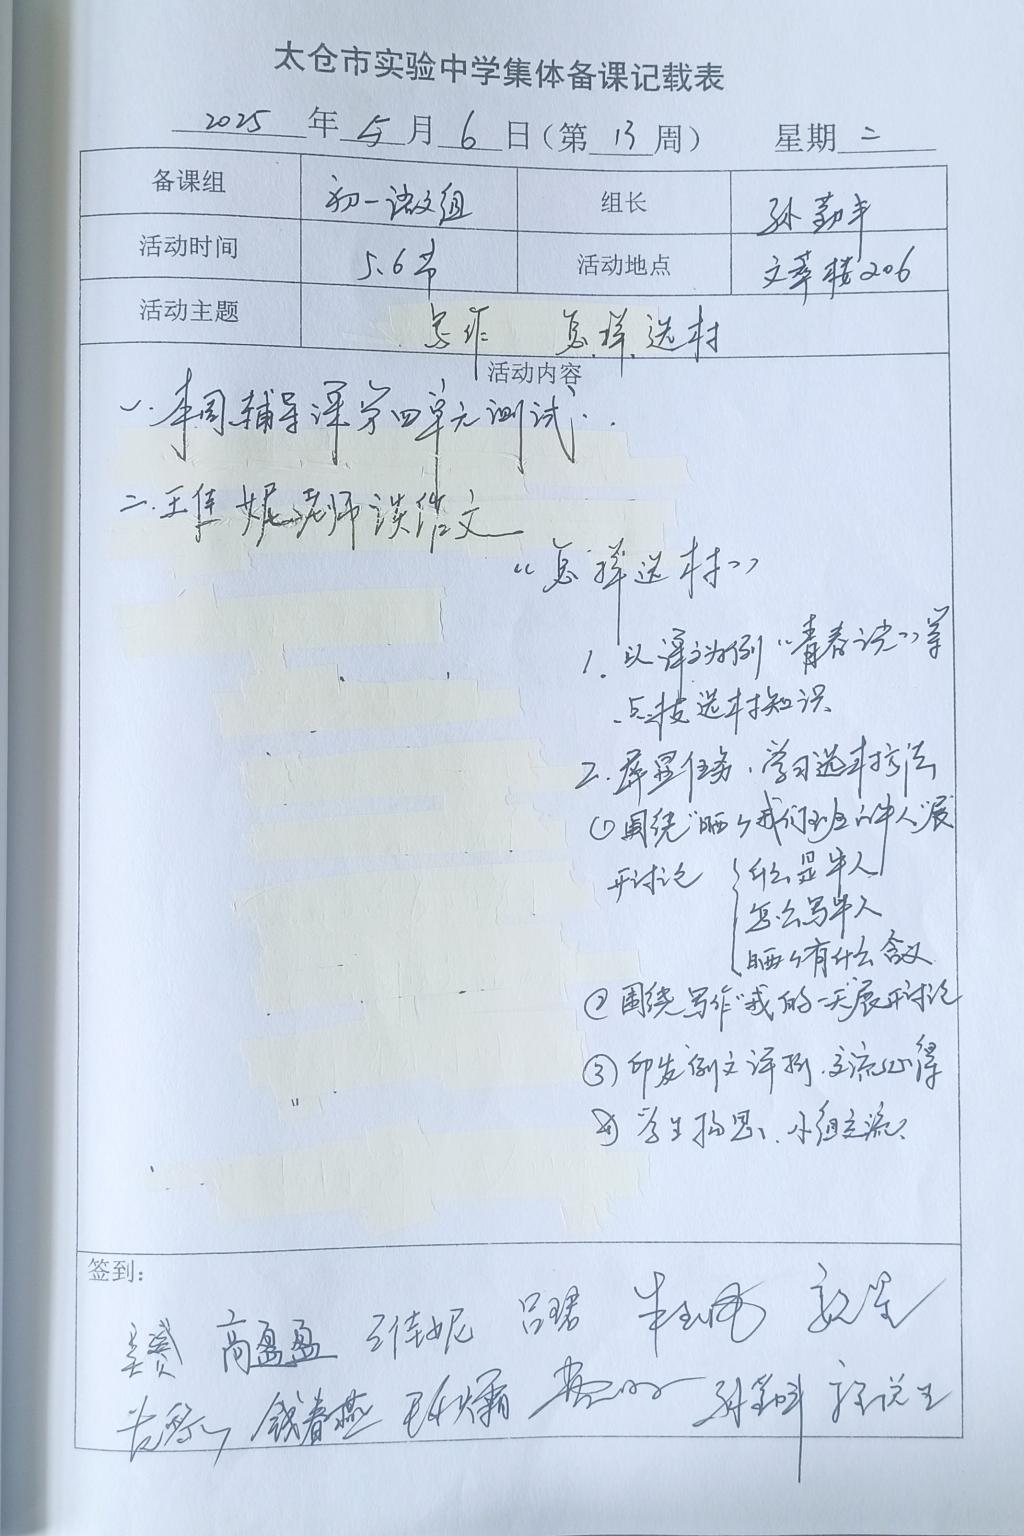 太仓市实验中学集体备课记载表
2025 年 5 月 6 日（第 13 周） 星期 二
备课组 初一语文组 组长 孙勤
活动时间 5.6节 活动地点 文萃楼206
活动主题 写作 怎样选材
活动内容
一. 本周辅导课 第四单元测试.
二. 王佳妮老师谈作文
“怎样选材”
1. 以课文为例 “青春之光”等
点拨选材知识
2. 屏显任务, 学习选材方法
① 围绕“晒晒我们班的牛人”展
开讨论 什么是牛人
怎么写牛人
晒晒有什么含义
② 围绕写作“我的一天”展开讨论
③ 印发例文评析, 交流心得
④ 学生构思, 小组交流.
签到：
高盈盈 王佳妮 吕珺
钱春燕